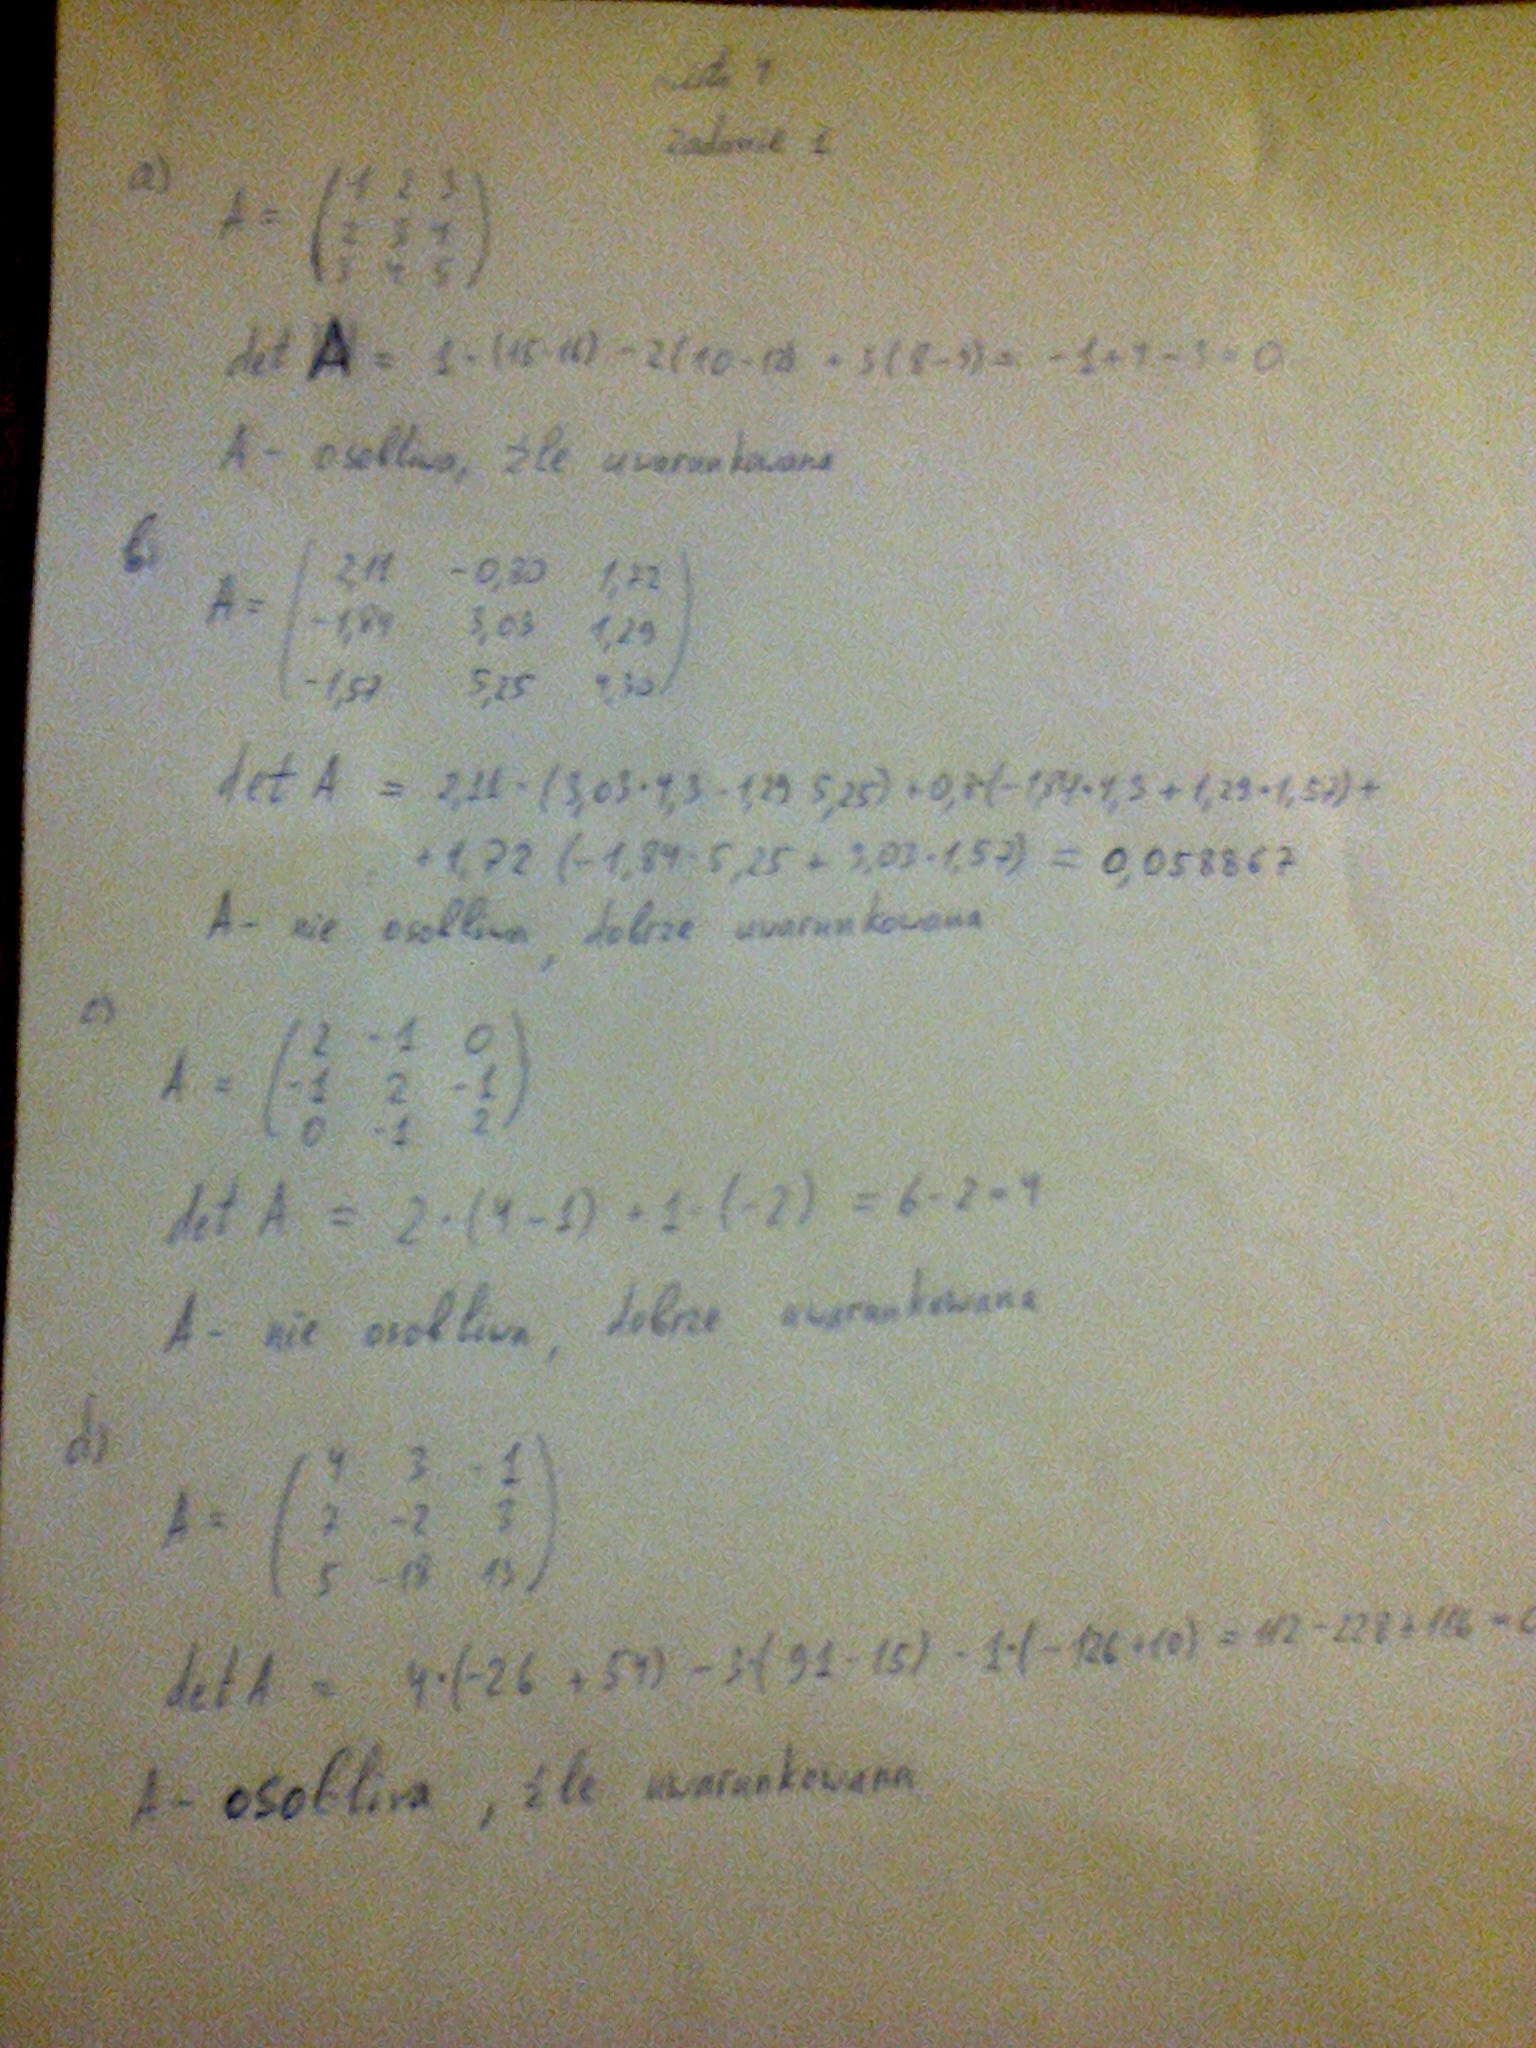 Lista 4
Zadanie 1
a)
A = (1 2 3
2 3 4
3 4 5)
det A = 1·(15-16) -2(10-12) + 3(8-9) = -1+4-3=0
A - osobliwa, źle uwarunkowana
b)
A = (2,11 -0,80 1,72
-1,84 3,03 1,29
-1,57 5,25 4,30)
det A = 2,11·(3,03·4,3-1,29·5,25)+0,8·(-1,84·4,3+1,29·1,57)+
+1,72 (-1,84·5,25+3,03·1,57) = 0,058867
A - nie osobliwa, dobrze uwarunkowana
c)
A = (2 -1 0
-1 2 -1
0 -1 2)
det A = 2·(4-1)+1·(-2) = 6-2=4
A - nie osobliwa, dobrze uwarunkowana
d)
A = (4 3 -1
7 -2 3
5 -18 13)
det A = 4·(-26+54)-3·(91-15)-1·(-126+10) = 112-228+116=0
A - osobliwa, źle uwarunkowana